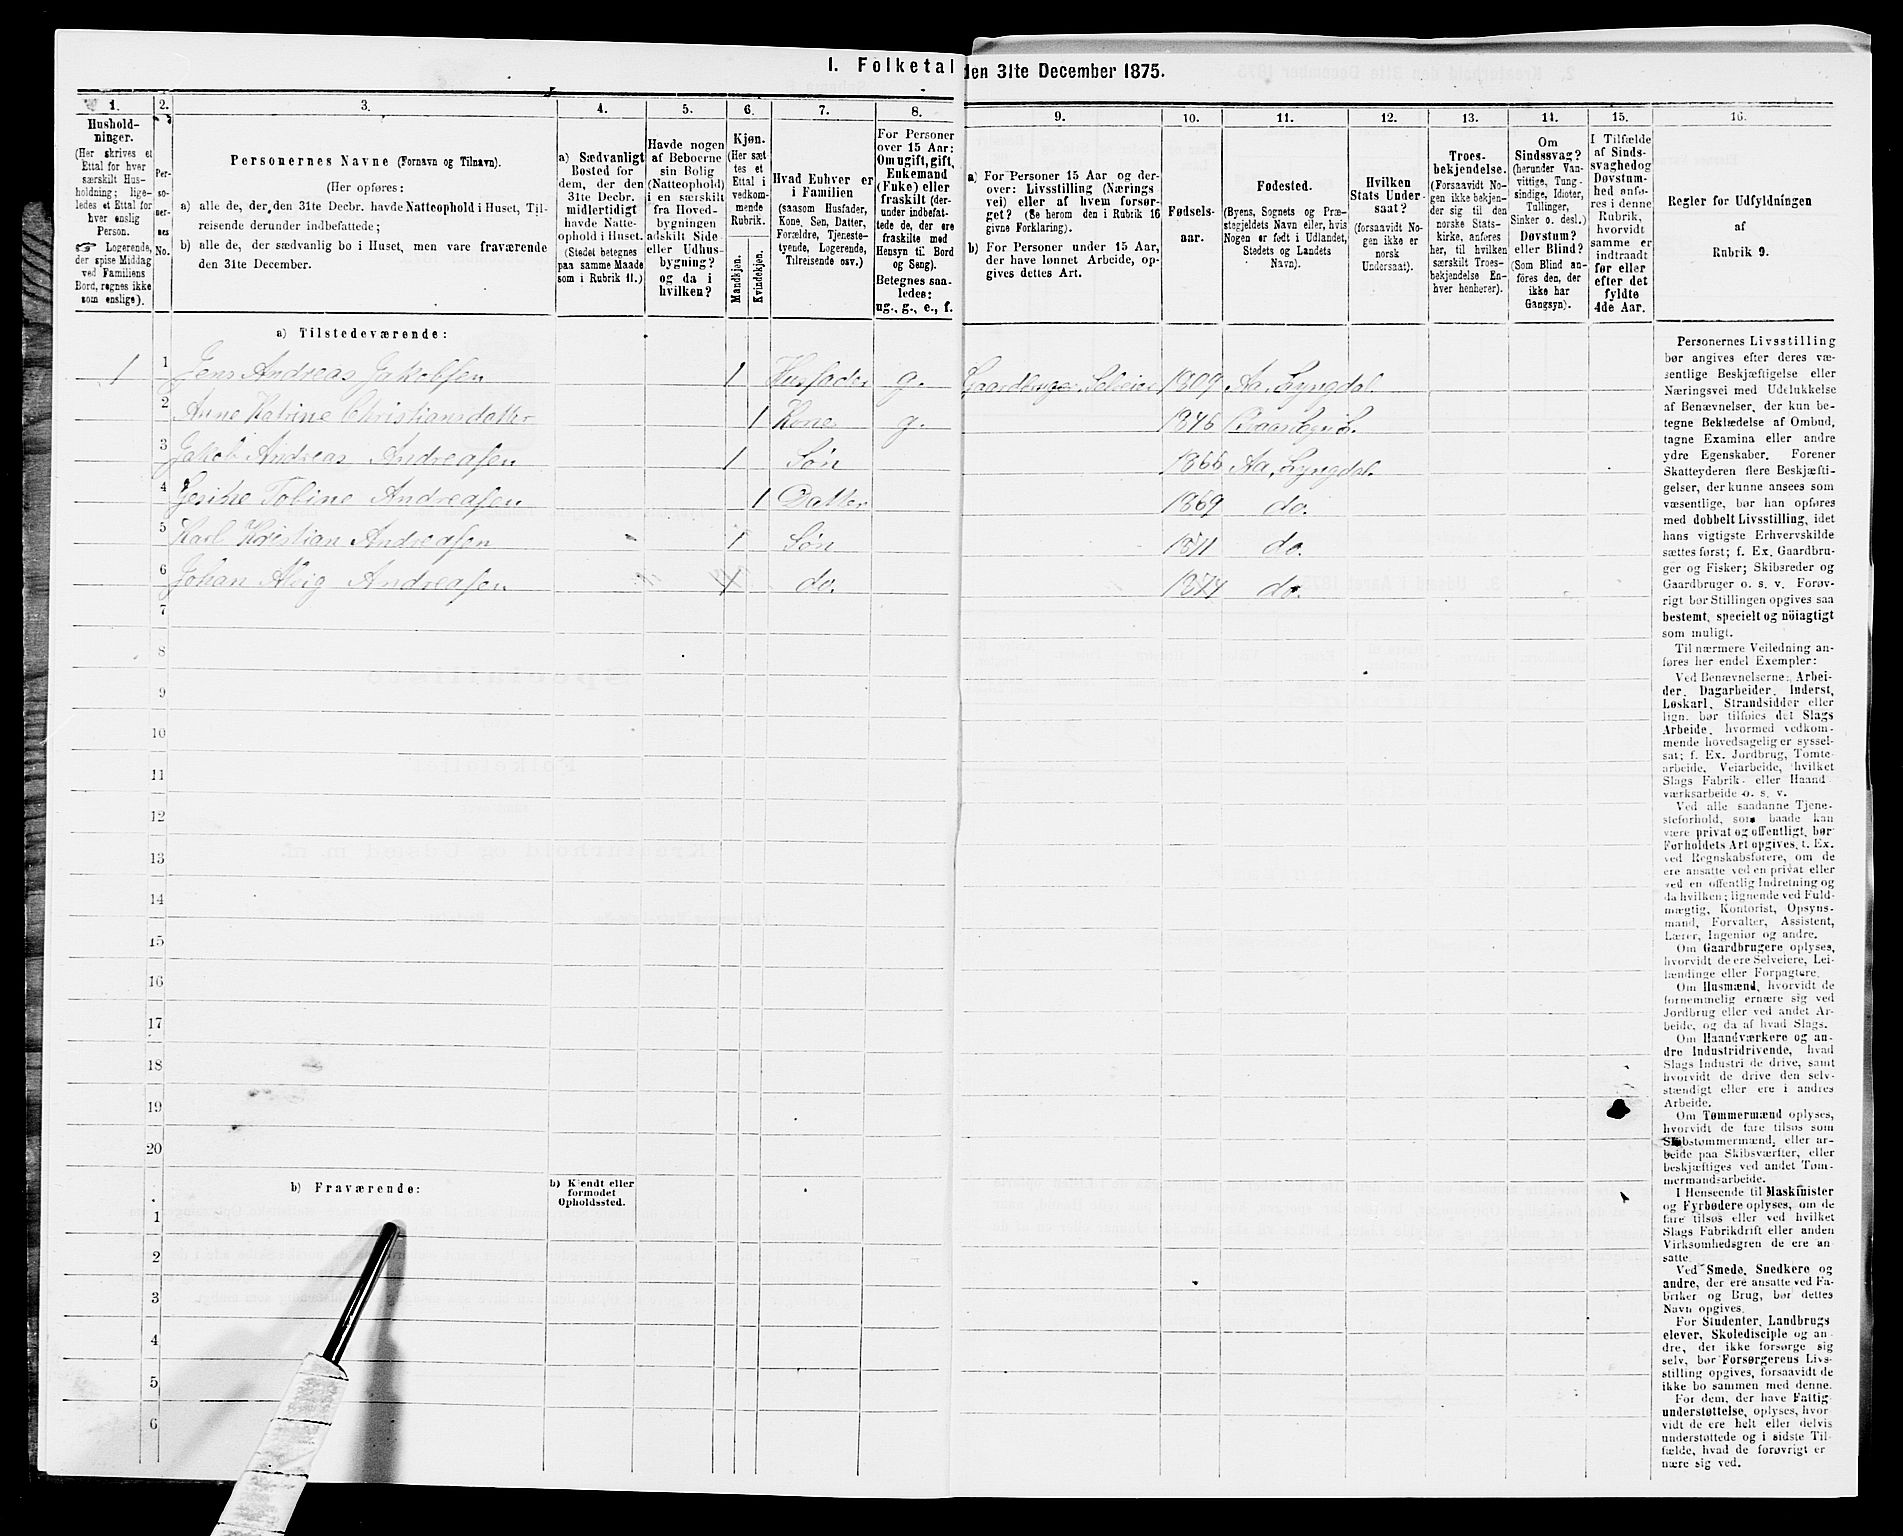 I. Folketal den 31te December 1875.
1. 2. 3. 4. 5. 6. 7. 8. 9. 10. 11. 12. 13. 14. 15. 16.
Husholdninger.
(Her skrives et
Ettal for hver
særskilt Husholdning; ligeledes
et Ettal for
hver enslig
Person.
☞ Logerende,
der spise Middag
ved Familiens
Bord, regnes ikke
som enslige).
Personernes No.
Personernes Navne (Fornavn og Tilnavn).
(Her opføres:
a) alle de, der den 31te Decbr. havde Natteophold i Huset, Tilreisende derunder indbefattede;
b) alle de, der sædvanlig bo i Huset, men vare fraværende
den 31te December.
a) Sædvanligt
Bosted for
dem, der den
31te Decbr.
midlertidigt
havde Natteophold i Huset.
(Stedet betegnes
paa samme Maade
som i Rubrik 11.)
Havde nogen
af Beboerne
sin Bolig
(Natteophold)
i en særskilt
fra Hovedbygningen
adskilt Side-
eller Udhusbygning?
og da i
hvilken?
Kjøn.
(Her sættes et
Ettal i
vedkommende
Rubrik.
Mandkjøn.
Kvindekjøn.
Hvad Enhver er
i Familien
(saasom Husfader,
Kone, Søn, Datter,
Forældre, Tjenestetyende, Logerende,
Tilreisende osv.)
For Personer
over 15 Aar:
Om ugift, gift,
Enkemand
(Enke) eller
fraskilt (derunder indbefattede de, der ere
fraskilte med
Hensyn til Bord
og Seng).
Betegnes saaledes:
ug., g., e., f.
a) For Personer 15 Aar og derover: Livsstilling (Næringsvei) eller af hvem forsørget? (Se herom den i Rubrik 16
givne Forklaring).
b) For Personer under 15 Aar,
der have lønnet Arbeide, opgives dettes Art.
Fødselsaar.
Fødested.
(Byens, Sognets og Præstegjeldets Navn eller, hvis
Nogen er født i Udlandet,
Stedets og Landets
Navn).
Hvilken
Stats Undersaat?
(forsaavidt Nogen ikke er
norsk
Undersaat).
Troesbekjendelse.
(Forsaavidt Nogen ikke bekjender sig til den
norske Statskirke, anføres
her, til hvilken
særskilt Troesbekjendelse Enhver henhører).
Om
Sindssvag?
(herunder Vanvittige, Tungsindige, Idioter,
Tullinger,
Sinker o. desl.)
Døvstum?
eller Blind?
(Som Blind anføres den, der
ikke har
Gangsyn).
I Tilfælde
af Sindssvaghed og
Døvstumhed anføres i denne
Rubrik,
hvorvidt
samme er
indtraadt
før eller
efter det
fyldte
4de Aar.
Regler for Udfyldningen
af
Rubrik 9.
a) Tilstedeværende:
1 1 Jens Andreas Jakobsen 1 Husfader g. Gaardbruger, Selveier 1809 Aa, Lyngdal
2 Anne Katrine Christiansdatter 1 Kone g. 1846
3 Jakob Andreas Andreasen 1 Søn 1866 Aa, Lyngdal
4 Gesine Tobine Andreasen 1 Datter 1869 do.
5 Karl Kristian Andreasen 1 Søn 1871 do.
6 Johan Alvig Andreasen 1 do. 1874 do.
7
8
9
10
11
12
13
14
15
16
17
18
19
20
b) Fraværende: b) Kjendt eller
formodet
Opholdssted.
1
2
3
4
5
6
Personernes Livsstilling
bør angives efter deres væsentlige Beskjæftigelse eller
Næringsvei med Udelukkelse
af Benævnelser, der kun betegne Beklædelse af Ombud,
tagne Examina eller andre
ydre Egenskaber. Forener
Skatteyderen flere Beskjæftigelser, der kunne ansees som
væsentlige, bør han opføres
med dobbelt Livsstilling, idet
hans vigtigste Erhvervskilde
sættes først; f. Ex. Gaardbruger og Fisker; Skibsreder og
Gaardbruger o. s. v. Forøvrigt bør Stillingen opgives saa
bestemt, specielt og nöiagtigt
som muligt.
Til nærmere Veiledning anføres her endel Exempler:
Ved Benævnelserne: Arbeider, Dagarbeider, Inderst,
Løskarl, Strandsidder eller
lign. bør tilføies det Slags
Arbeide, hvormed vedkommende hovedsagelig er sysselsat; f. Ex. Jordbrug, Tomtearbeide, Veiarbeide, hvilket
Slags Fabrik- eller Haandværksarbeide o. s. v.
Ved alle saadanne Tjenesteforhold, som baade kan
være privat og offentligt, bør
Forholdets Art opgives, f. Ex.
ved Regnskabsførere, om de
ere ansatte ved en privat eller
ved en offentlig Indretning og
da hvilken; lignende ved Fuldmægtig, Kontorist, Opsynsmand, Forvalter, Assistent,
Lærer, Ingeniør og andre.
Om Gaardbrugere oplyses,
hvorvidt de ere Selveiere, Leilændinge eller Forpagtere.
Om Husmænd, hvorvidt de
fornemmelig ernære sig ved
Jordbrug eller ved andet Arbeide, og da af hvad Slags.
Om Haandværkere og andre Industridrivende, hvad
Slags Industri de drive, samt
hvorvidt de drive den selvstændigt eller ere i andres
Arbeide.
Om Tømmermænd oplyses,
hvorvidt de fare tilsøs som
Skibstømmermænd, eller arbeide paa Skibsværfter, eller
beskjæftiges ved andet Tømmermandsarbeide.
I Henseende til Maskinister
og Fyrbødere oplyses, om de
fare tilsøs eller ved hvilket
Slags Fabrikdrift eller anden
Virksomhedsgren de ere ansatte.
Ved Smede, Snedkere og
andre, der ere ansatte ved Fabriker og Brug, bør dettes
Navn opgives.
For Studenter, Landbrugselever, Skoledisciple og andre, der ikke forsørge sig
selv, bør Forsørgerens Livsstilling opgives, forsaavidt de
ikke bo sammen med denne.
For dem, der have Fattigunderstøttelse, oplyses, hvorvidt de ere helt eller delvis
understøttede og i sidste Tilfælde, hvad de forøvrigt ernære sig ved.